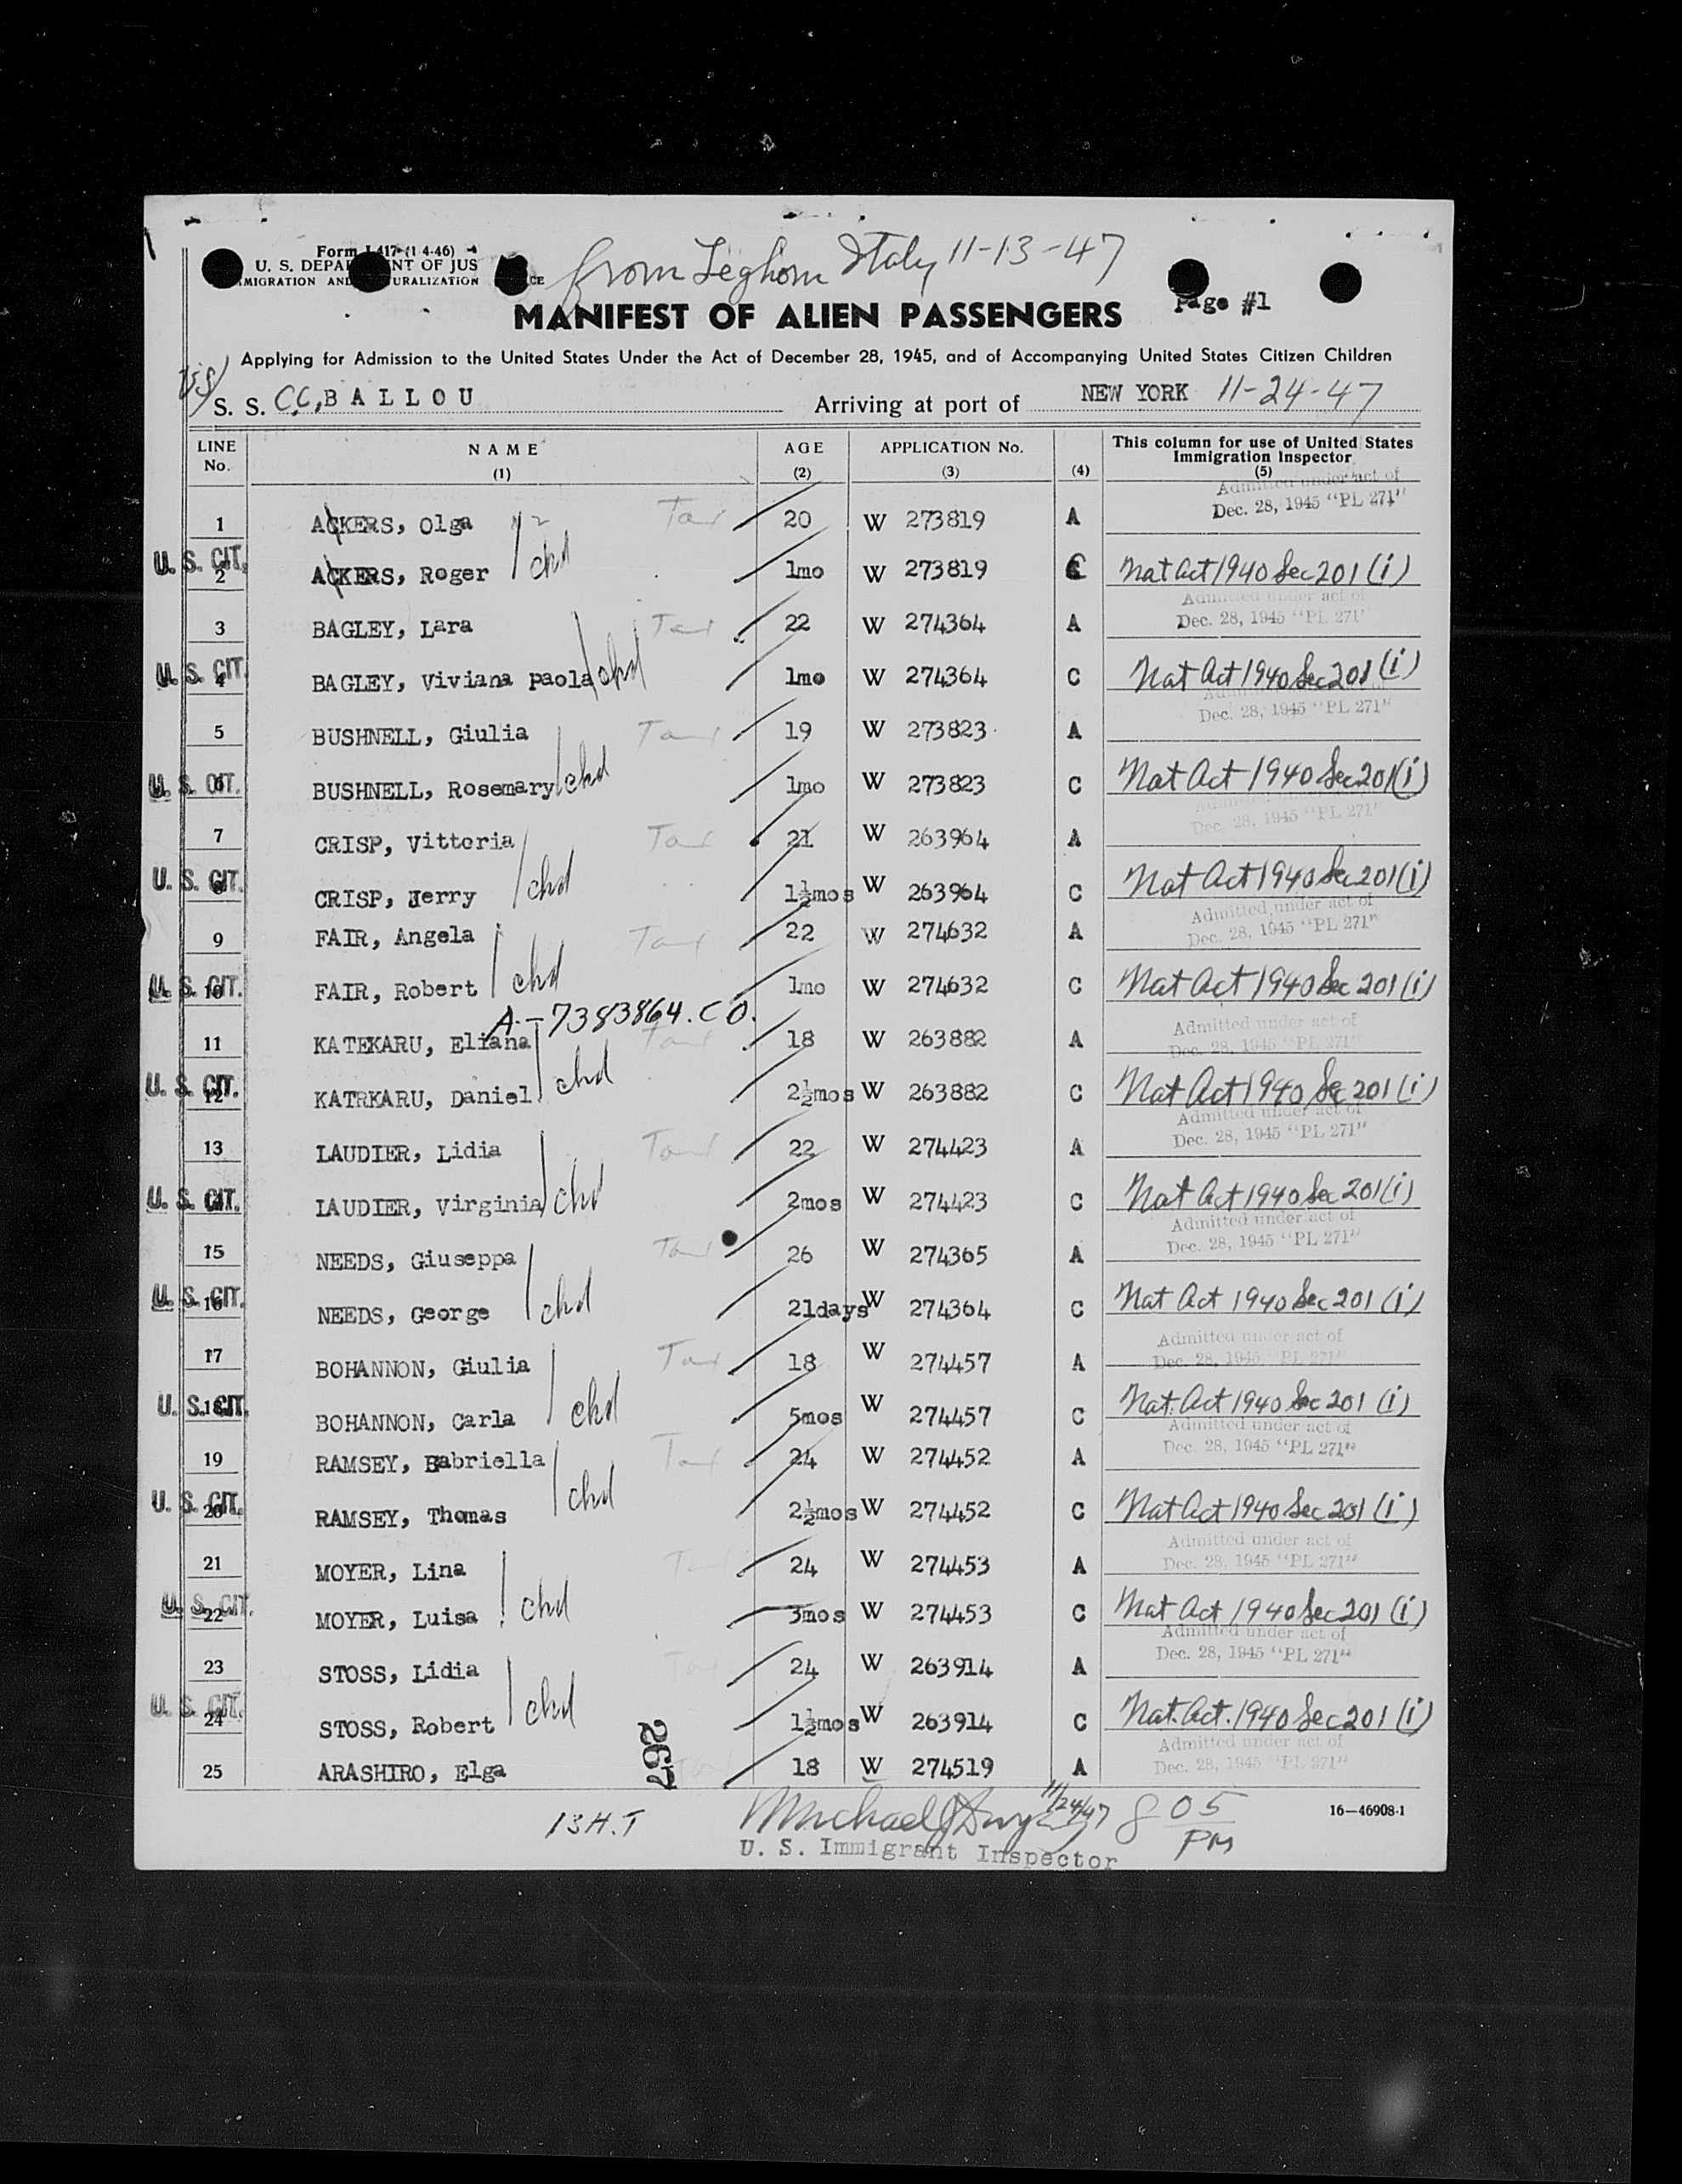 Form I-417 (1-4-46)
U. S. DEPA NT OF JUS
MIGRATION AND URALIZATION CE
from Leghorn Italy 11-13-47
MANIFEST OF ALIEN PASSENGERS
Page #1
Applying for Admission to the United States Under the Act of December 28, 1945, and of Accompanying United States Citizen Children
S. S. C.C. BALLOU Arriving at port of NEW YORK 11-24-47
LINE No. NAME (1) AGE (2) APPLICATION No. (3) (4) This column for use of United States Immigration Inspector (5)
Admitted under act of
1 ACKERS, Olga Tax 20 W 273819 A Dec. 28, 1945 "PL 271"
U. S. CIT. 2 ACKERS, Roger chd 1mo W 273819 C Nat Act 1940 Sec 201 (i)
Admitted under act of
3 BAGLEY, Lara Tax 22 W 274364 A Dec. 28, 1945 "PL 271"
U. S. CIT. 4 BAGLEY, Viviana Paola chd 1mo W 274364 C Nat Act 1940 Sec 201 (i)
Dec. 28, 1945 "PL 271"
5 BUSHNELL, Giulia Tax 19 W 273823 A
U. S. CIT. 6 BUSHNELL, Rosemary chd 1mo W 273823 C Nat Act 1940 Sec 201 (i)
Dec. 28, 1945 "PL 271"
7 CRISP, Vittoria Tax 21 W 263964 A
U. S. CIT. 8 CRISP, Jerry chd 1½mos W 263964 C Nat Act 1940 Sec 201 (i)
Admitted under act of
9 FAIR, Angela Tax 22 W 274632 A Dec. 28, 1945 "PL 271"
U. S. CIT. 10 FAIR, Robert chd 1mo W 274632 C Nat Act 1940 Sec 201 (i)
A-7383864. CO.
Admitted under act of
11 KATEKARU, Eliana Tax 18 W 263882 A Dec. 28, 1945 "PL 271"
U. S. CIT. 12 KATEKARU, Daniel chd 2½mos W 263882 C Nat Act 1940 Sec 201 (i)
Admitted under act of
13 LAUDIER, Lidia Tax 22 W 274423 A Dec. 28, 1945 "PL 271"
U. S. CIT. 14 LAUDIER, Virginia chd 2mos W 274423 C Nat Act 1940 Sec 201 (i)
Admitted under act of
15 NEEDS, Giuseppa Tax 26 W 274365 A Dec. 28, 1945 "PL 271"
U. S. CIT. 16 NEEDS, George chd 21days W 274364 C Nat Act 1940 Sec 201 (i)
Admitted under act of
17 BOHANNON, Giulia Tax 18 W 274457 A Dec. 28, 1945 "PL 271"
U. S. CIT. 18 BOHANNON, Carla chd 5mos W 274457 C Nat. Act 1940 Sec 201 (i)
Admitted under act of
19 RAMSEY, Gabriella Tax 24 W 274452 A Dec. 28, 1945 "PL 271"
U. S. CIT. 20 RAMSEY, Thomas chd 2½mos W 274452 C Nat Act 1940 Sec 201 (i)
Admitted under act of
21 MOYER, Lina Tax 24 W 274453 A Dec. 28, 1945 "PL 271"
U. S. CIT. 22 MOYER, Luisa chd 3mos W 274453 C Nat Act 1940 Sec 201 (i)
Admitted under act of
23 STOSS, Lidia Tax 24 W 263914 A Dec. 28, 1945 "PL 271"
U. S. CIT. 24 STOSS, Robert chd 1½mos W 263914 C Nat. Act. 1940 Sec 201 (i)
Admitted under act of
25 ARASHIRO, Elga 18 W 274519 A Dec. 28, 1945 "PL 271"
267
13 H.T Michael J 11/24/47 8 05 PM 16—46908-1
U. S. Immigrant Inspector